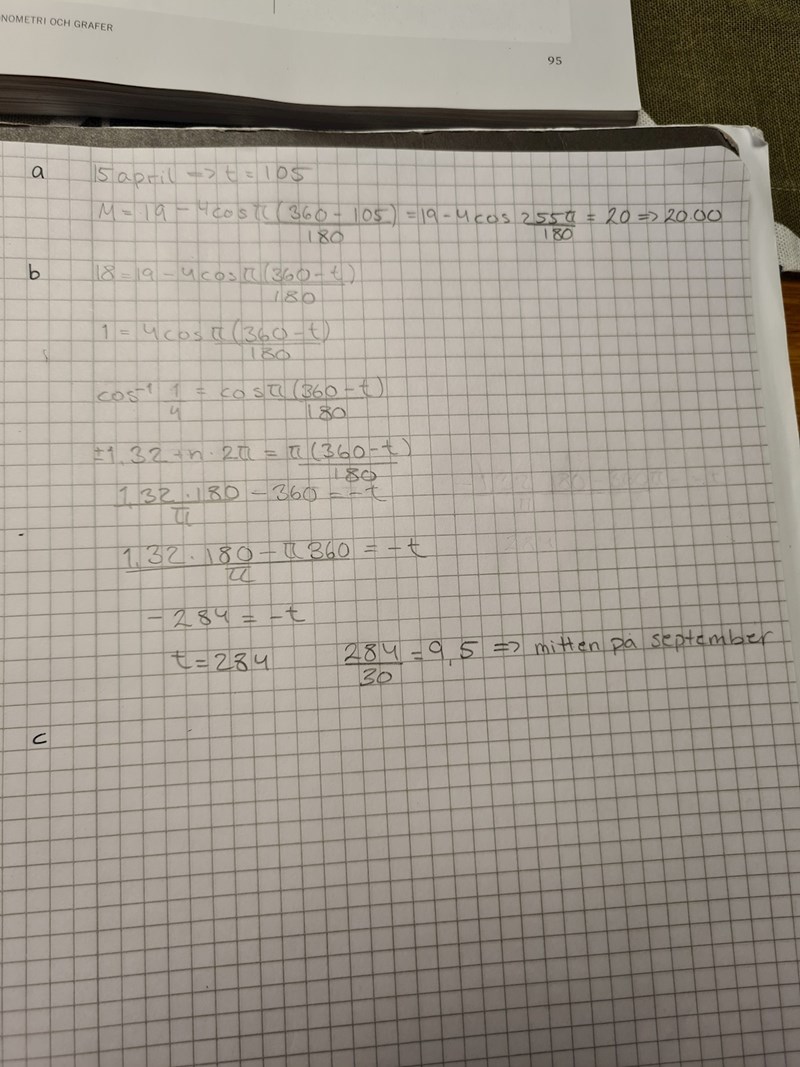 NOMETRI OCH GRAFER
95
a 15 april => t = 105
M = 19 - 4cos π(360 - 105)/180 = 19 - 4cos 255π/180 = 20 => 20.00
b 18 = 19 - 4cos π(360 - t)/180
1 = 4cos π(360 - t)/180
cos⁻¹ 1/4 = cos π(360 - t)/180
±1,32 + n · 2π = π(360 - t)/180
1,32 · 180/π - 360 = -t
1,32 · 180 - π360/π = -t
- 284 = -t
t = 284 284/30 = 9,5 => mitten på september
c